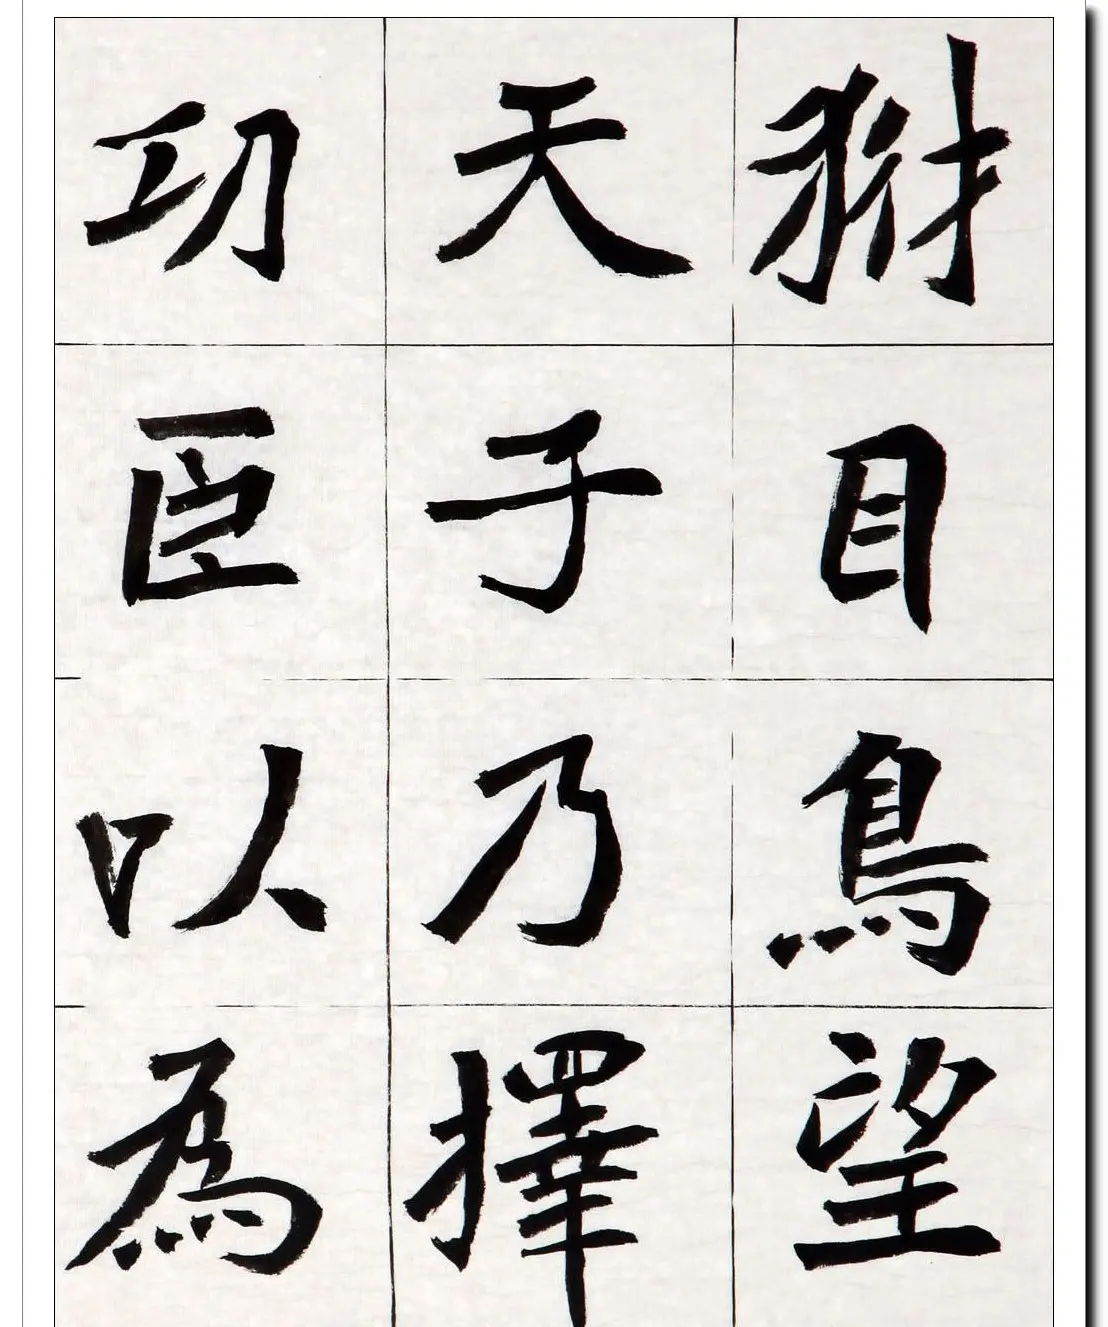 豺目鳥望
天子乃擇
功臣以為